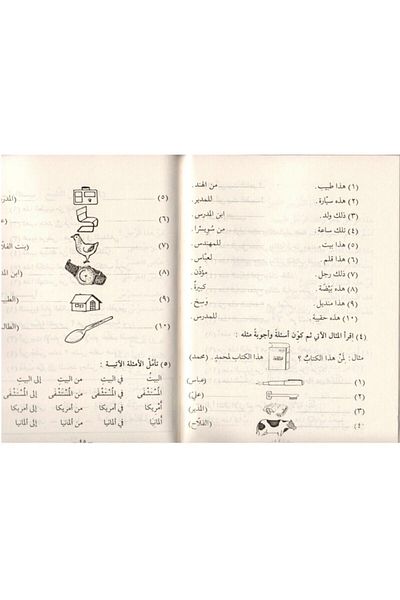 (١) هذا طبيب. من الهند.
(٢) هذه سيّارة. للمدير.
(٣) ذلك ولد. ابن المدرس.
(٤) تلك ساعة. من سُوِيسْرا.
(٥) هذا بيت. للمهندس.
(٦) هذا قلم. لعبّاس.
(٧) ذلك رجل. مؤذّن.
(٨) هذه بَيْضَة. كبيرةٌ.
(٩) هذا منديل. وسِخ.
(١٠) هذه حقيبة. للمدرس.
(٤) اقرأ المثال الآتي ثم كوّن أسئلة وأجوبةً مثله :
مثال : لِمَنْ هذا الكتابُ ؟ هذا الكتاب لمُحمدٍ. (محمد)
(١) (عباس)
(٢) (عليّ)
(٣) (المدير)
(٤) (الفلّاح)
(٥) (المدر
(٦)
(٧) (بنت الفلّا
(٨) (ابن المد
(٩) (الطب
(١٠) (الطال
(٥) تأمّل الأمثلة الآتيـة :
البيتُ في البيتِ من البيتِ إلى البيتِ
المُسْتَشْفَى في المُسْتَشْفَى من المُسْتَشْفَى إلى المُسْتَشْفَى
أمْرِيكا في أمريكا من أمريكا إلى أمريكا
ألمانيا في ألمانيا من ألمانيا إلى ألمانيا